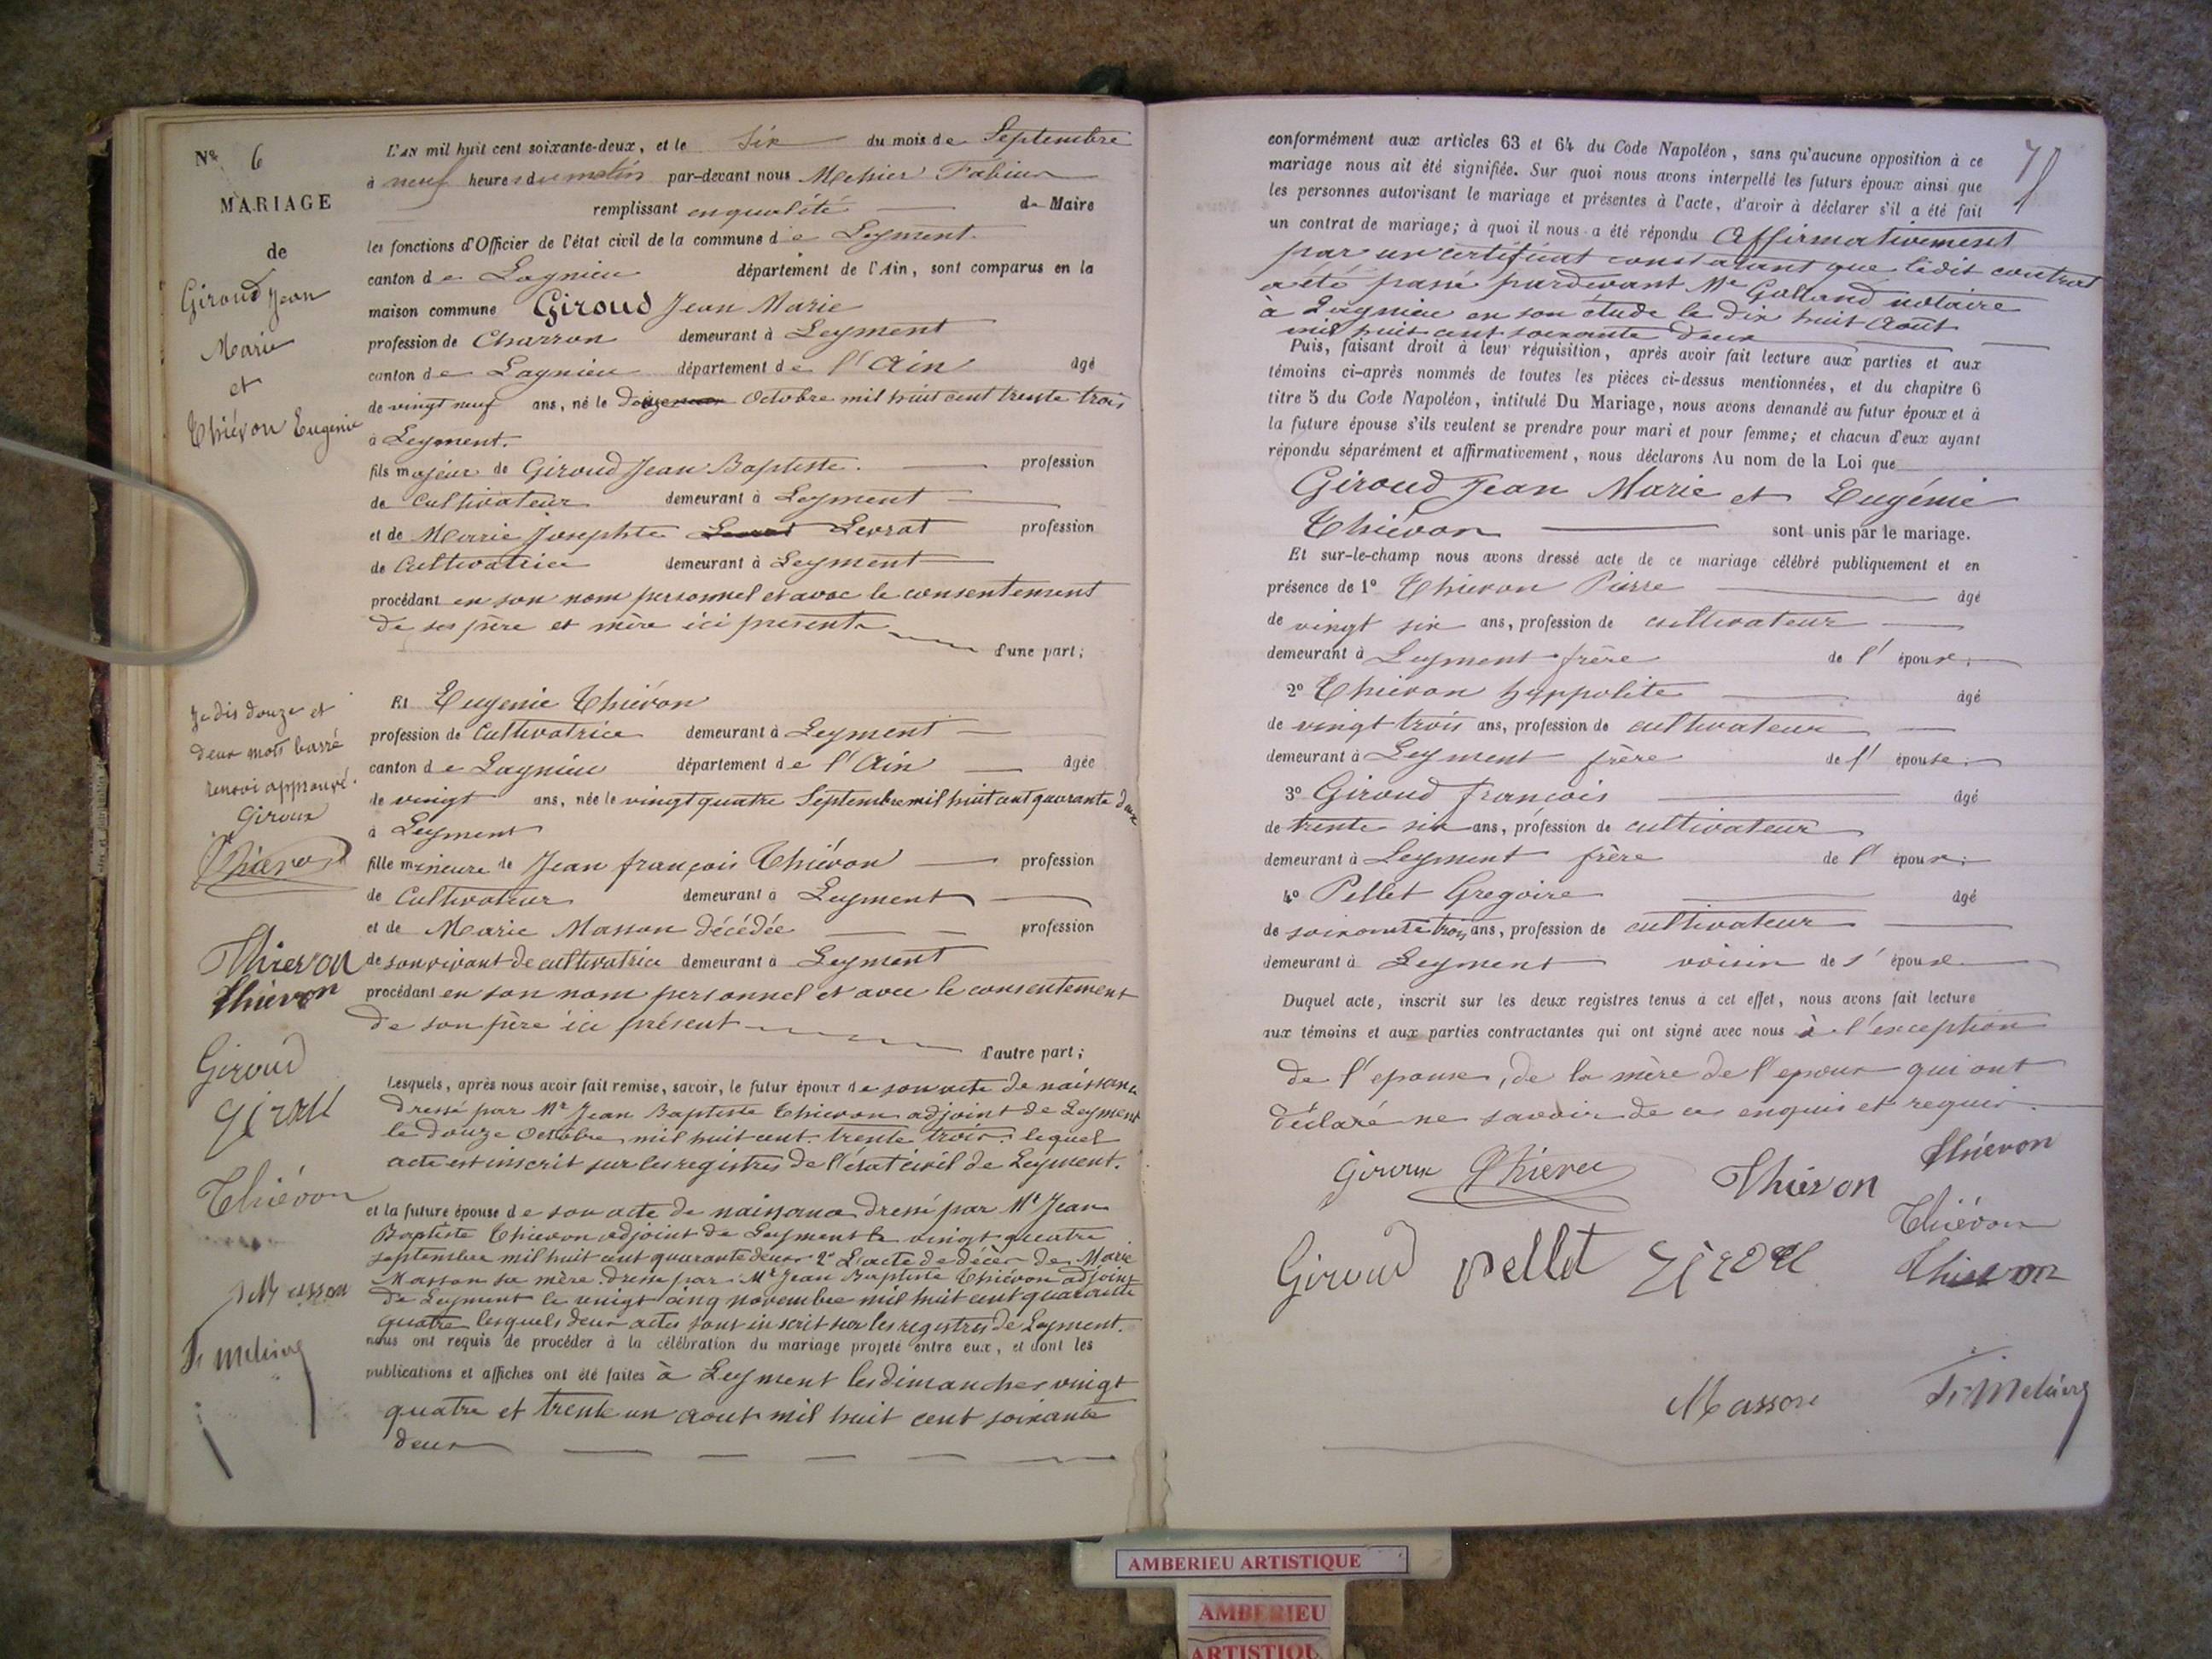 N° 6
MARIAGE
de
Giroud Jean
Marie
et
Thiévon Eugénie
L'AN mil huit cent soixante-deux, et le six du mois de Septembre
à neuf heures du matin par-devant nous Mehier Fabien
remplissant en qualité de Maire
les fonctions d'Officier de l'état civil de la commune de Leyment
canton de Lagnieu département de l'Ain, sont comparus en la
maison commune Giroud Jean Marie
profession de Charron demeurant à Leyment
canton de Lagnieu département de l'Ain âgé
de vingt neuf ans, né le douze Octobre mil huit cent trente trois
à Leyment.
fils majeur de Giroud Jean Baptiste. profession
de Cultivateur demeurant à Leyment
et de Marie Josephte Levrat profession
de Cultivatrice demeurant à Leyment
procédant en son nom personnel et avec le consentement
de ses père et mère ici présents
d'une part;
Je dis douze et
deux mots barré
renvoi approuvé.
Giroux
Et Eugenie Thiévon
profession de Cultivatrice demeurant à Leyment
canton de Lagnieu département de l'Ain âgée
de vingt ans, née le vingt quatre Septembre mil huit cent quarante deux
à Leyment
fille mineure de Jean françois Thiévon profession
de Cultivateur demeurant à Leyment
et de Marie Masson décédée profession
de son vivant de cultivatrice demeurant à Leyment
procédant en son nom personnel et avec le consentement
de son père ici présent
d'autre part;
Thievon
thievon
Giroud
Thiévon
Masson
Lesquels, après nous avoir fait remise, savoir, le futur époux de son acte de naissance
dressé par Mr Jean Baptiste Thievon adjoint de Leyment
le douze Octobre mil huit cent trente trois. lequel
acte est inscrit sur les registres de l'état civil de Leyment.
et la future épouse de son acte de naissance dressé par Mr Jean
Baptiste Thievon adjoint de Leyment le vingt quatre
septembre mil huit cent quarante deux 2° L'acte de décès de Marie
Masson sa mère dressé par Mr Jean Baptiste Thiévon adjoint
de Leyment le vingt cinq novembre mil huit cent quarante
quatre lesquels deux actes sont inscrit sur les registres de Leyment.
nous ont requis de procéder à la célébration du mariage projeté entre eux, et dont les
publications et affiches ont été faites à Leyment les dimanches vingt
quatre et trente un aout mil huit cent soixante
deux
conformément aux articles 63 et 64 du Code Napoléon, sans qu'aucune opposition à ce
mariage nous ait été signifiée. Sur quoi nous avons interpellé les futurs époux ainsi que
les personnes autorisant le mariage et présentes à l'acte, d'avoir à déclarer s'il a été fait
un contrat de mariage; à quoi il nous a été répondu Affirmativement
par un certificat constatant que ledit contrat
a été passé pardevant Me Golland notaire
à Lagnieu en son étude le dix huit Août
mil huit cent soixante deux
Puis, faisant droit à leur réquisition, après avoir fait lecture aux parties et aux
témoins ci-après nommés de toutes les pièces ci-dessus mentionnées, et du chapitre 6
titre 5 du Code Napoléon, intitulé Du Mariage, nous avons demandé au futur époux et à
la future épouse s'ils veulent se prendre pour mari et pour femme; et chacun d'eux ayant
répondu séparément et affirmativement, nous déclarons Au nom de la Loi que
Giroud Jean Marie et Eugénie
Thiévon sont unis par le mariage.
Et sur-le-champ nous avons dressé acte de ce mariage célébré publiquement et en
présence de 1° Thievon Pierre âgé
de vingt six ans, profession de cultivateur
demeurant à Leyment frère de l'épouse;
2° Thievon hyppolite âgé
de vingt trois ans, profession de cultivateur
demeurant à Leyment frère de l'épouse;
3° Giroud françois âgé
de trente six ans, profession de cultivateur
demeurant à Leyment frère de l'époux;
4° Pellet Gregoire âgé
de soixante trois ans, profession de cultivateur
demeurant à Leyment voisin de l'épouse
Duquel acte, inscrit sur les deux registres tenus à cet effet, nous avons fait lecture
aux témoins et aux parties contractantes qui ont signé avec nous à l'exception
de l'epouse, de la mère de l'epoux qui ont
déclaré ne savoir de ce enquis et requis.
Giroux Thievon thiévon
Thiévon
Giroud Pellet thievon
Masson
AMBERIEU ARTISTIQUE
AMBERIEU
ARTISTIQU